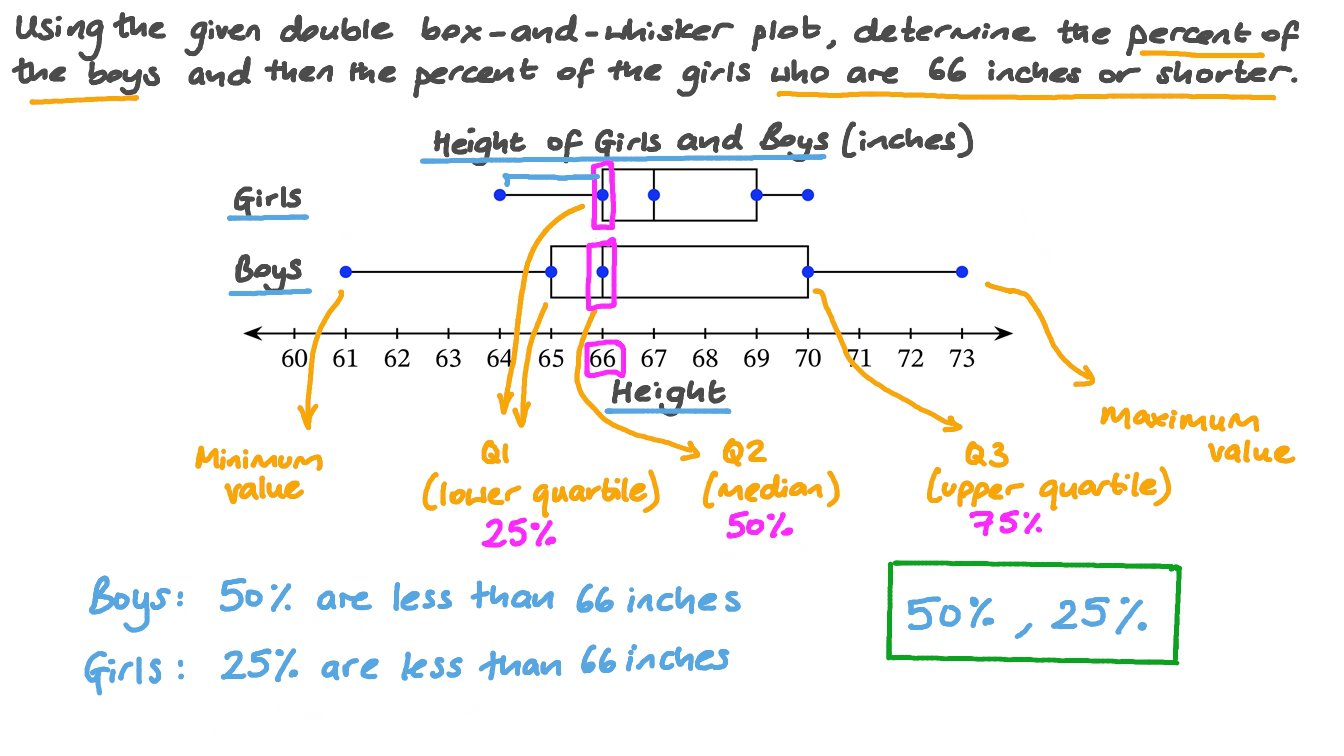 Using the given double box-and-whisker plot, determine the percent of
the boys and then the percent of the girls who are 66 inches or shorter.
Height of Girls and Boys (inches)
Girls
Boys
60 61 62 63 64 65 66 67 68 69 70 71 72 73
Height
Minimum
value
Q1
(lower quartile)
25%
Q2
(median)
50%
Q3
(upper quartile)
75%
Maximum
value
Boys: 50% are less than 66 inches
Girls: 25% are less than 66 inches
50%, 25%